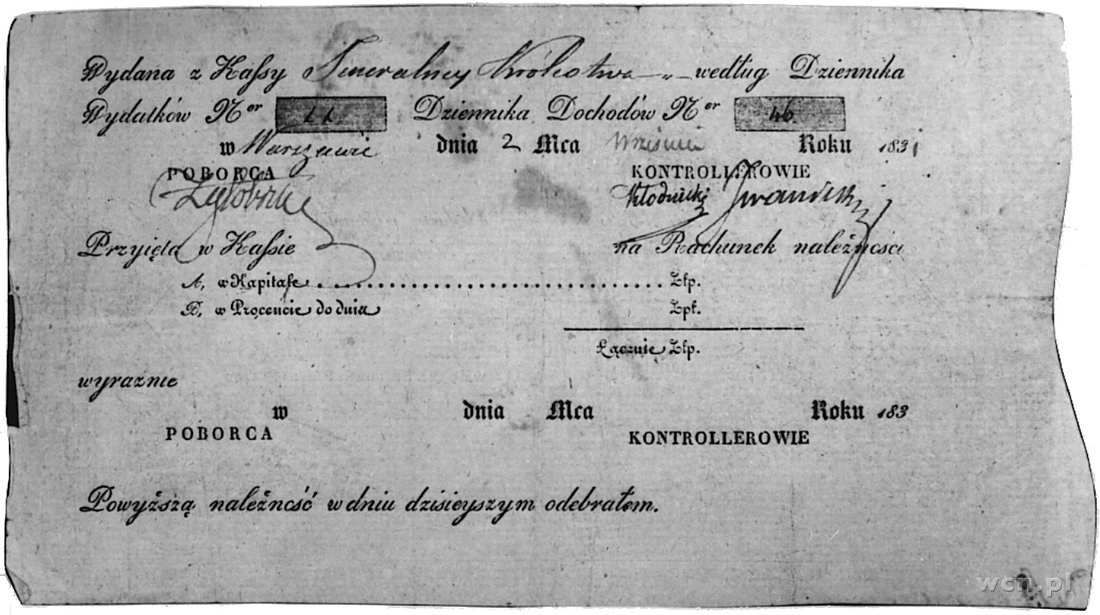 Wydana z Kassy Generalney Królestwa — „ — według Dziennika
Wydatków N er 11 Dziennika Dochodów N er 46
w Warszawie dnia 2 Mca Wrześni Roku 1831
POBORCA KONTROLLEROWIE
Kłodnicki
Przyięta w Kassie na Rachunek należności
A, w Kapitale .................................... Złp.
B, w Procencie do dnia Zpł.
Łącznie Złp.
wyraźnie
w dnia Mca Roku 183
POBORCA KONTROLLEROWIE
Powyższą należność w dniu dzisieyszym odebrałem.
wcn.pl